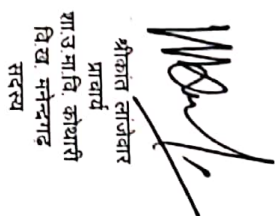 श्रीकांत तांजेवार
प्राचार्य
शा.उ.मा.वि. कोथारी
वि.ख. मनेन्द्रगढ़
सदस्य